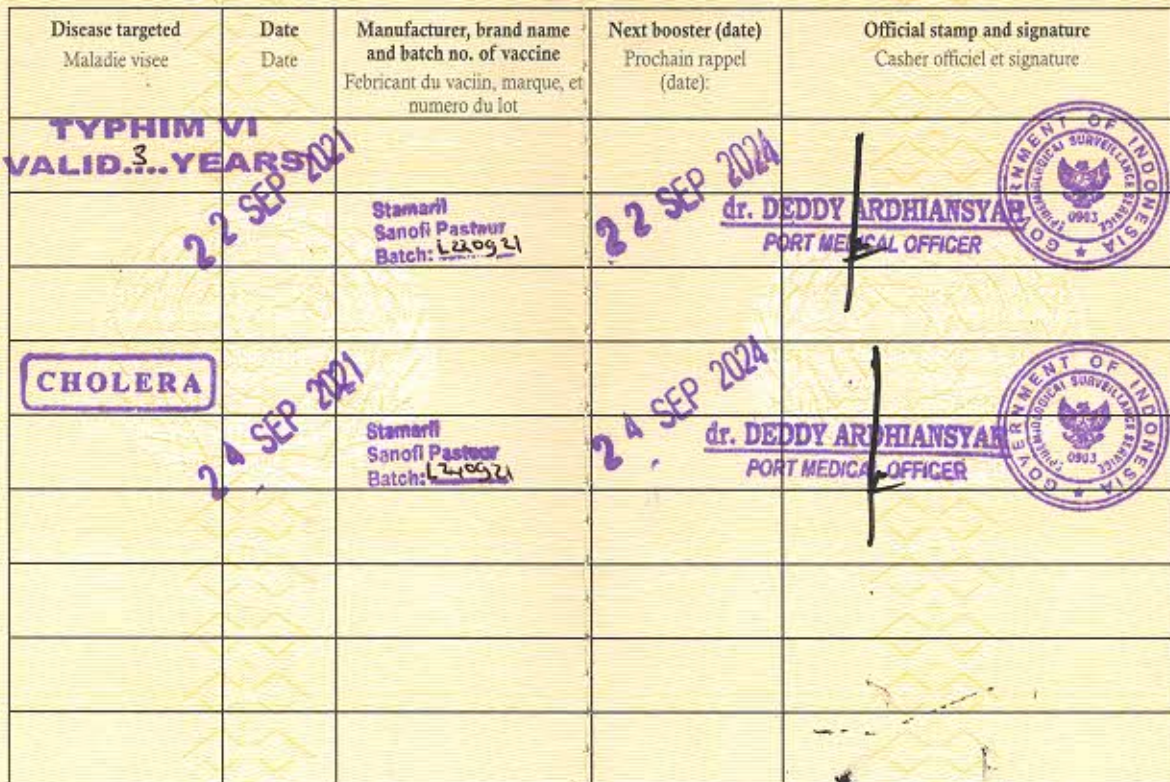 Disease targeted
Maladie visee
Date
Date
Manufacturer, brand name
and batch no. of vaccine
Febricant du vaciin, marque, et
numero du lot
Next booster (date)
Prochain rappel
(date):
Official stamp and signature
Casher officiel et signature
TYPHIM VI
VALID..3..YEARS
22 SEP 2021
Stamaril
Sanofi Pasteur
Batch: L220921
22 SEP 2024
dr. DEDDY ARDHIANSYAH
PORT MEDICAL OFFICER
GOVERNMENT OF INDONESIA
EPIDEMIOLOGICAL SURVEILLANCE SERVICE
0903
CHOLERA
24 SEP 2021
Stamaril
Sanofi Pasteur
Batch: L240921
24 SEP 2024
dr. DEDDY ARDHIANSYAH
PORT MEDICAL OFFICER
GOVERNMENT OF INDONESIA
EPIDEMIOLOGICAL SURVEILLANCE SERVICE
0903